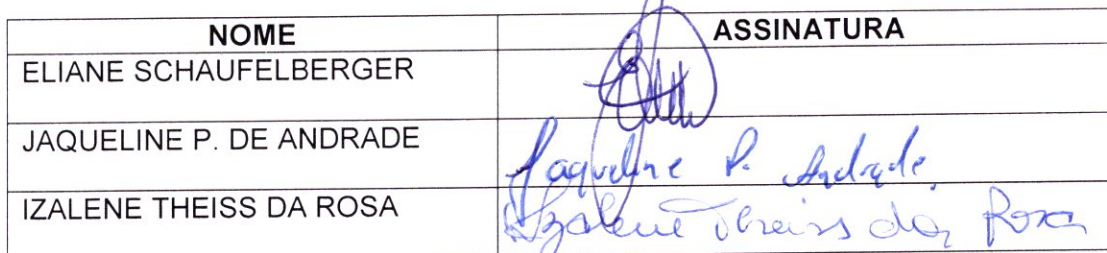 NOME ASSINATURA
ELIANE SCHAUFELBERGER
JAQUELINE P. DE ANDRADE Jaqueline P. Andrade
IZALENE THEISS DA ROSA Izalene Theiss da Rosa